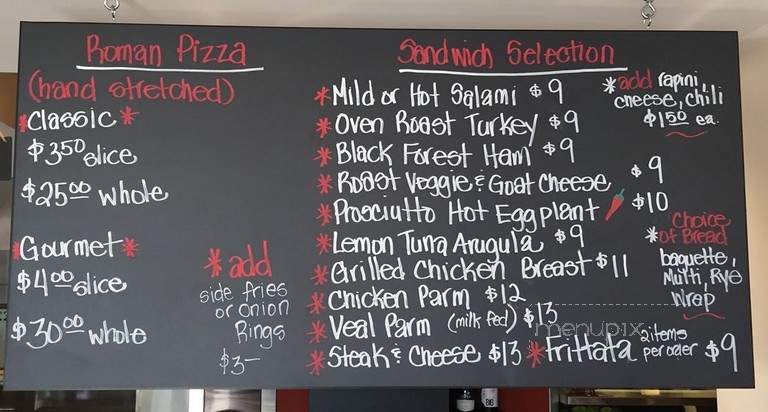 Roman Pizza
(hand stretched)
*Classic*
$3.50 slice
$25.00 whole
*Gourmet*
$4.00 slice
$30.00 whole
*add
side fries
or onion
Rings
$3-
Sandwich Selection
*Mild or Hot Salami $9
*Oven Roast Turkey $9
*Black Forest Ham $9
*Roast Veggie & Goat Cheese $9
*Prosciutto Hot Eggplant $10
*Lemon Tuna Arugula $9
*Grilled Chicken Breast $11
*Chicken Parm $12
*Veal Parm (milk fed) $13
*Steak & Cheese $13
*add rapini,
cheese, chili
$1.50 ea.
Choice
*of Bread
baguette,
Multi, Rye
Wrap
*Frittata 2 items
per order $9
menupix
BIG